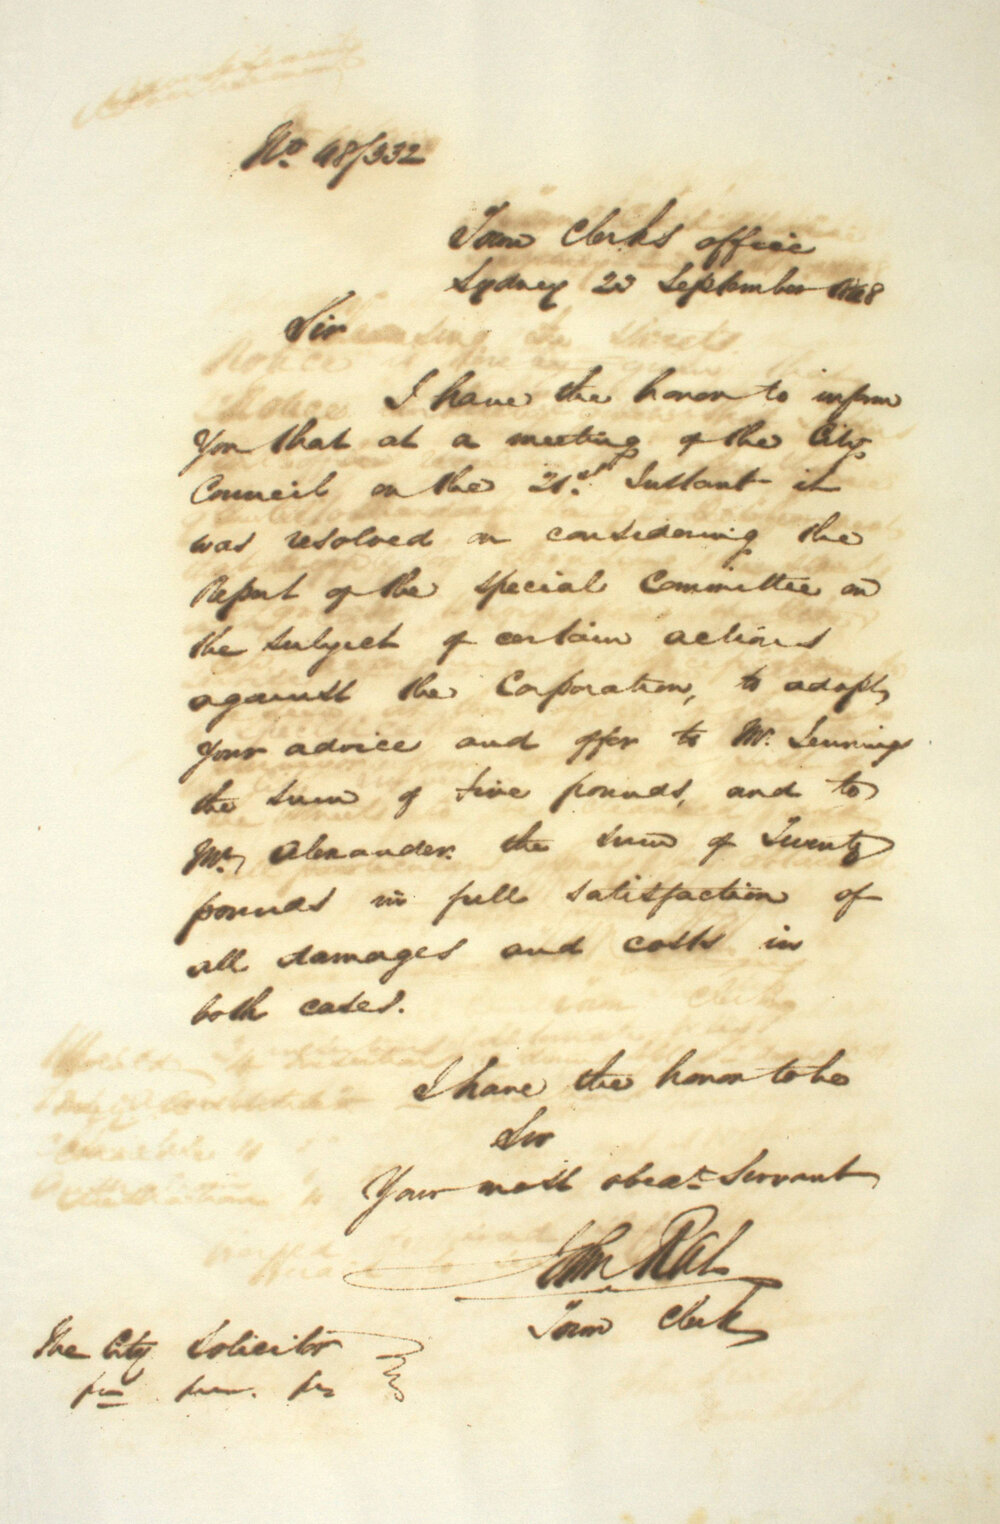 No. 48/332
Town Clerks office
Sydney 23 September 1848
Sir
I have the honor to inform
you that at a meeting of the City
Council on the 21st. Instant it
was resolved on considering the
Report of the special Committee on
the subject of certain actions
against the Corporation, to adopt
your advice and offer to Mr. Jennings
the sum of five pounds, and to
Mr. Alexander the sum of Twenty
pounds in full satisfaction of
all damages and costs in
both cases.
I have the honor to be
Sir
Your most obedt. Servant
John Rae
Town Clerk
The City Solicitor